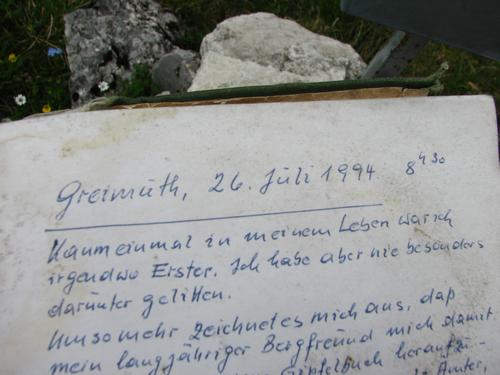 Greimuth, 26. Juli 1994 8⁴³⁰
Kaum einmal in meinem Leben war ich
irgendwo Erster. Ich habe aber nie besonders
darunter gelitten.
Umso mehr zeichnet es mich aus, daß
mein langjähriger Bergfreund mich damit
Gipfelbuch heraufzu-
Ämter,